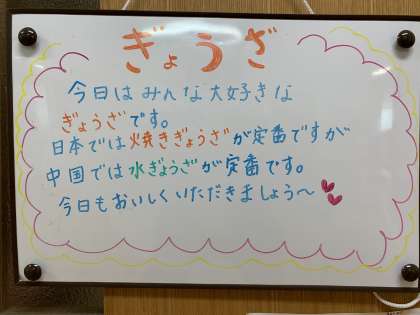 ぎょうざ
今日はみんな大好きな
ぎょうざです。
日本では焼きぎょうざが定番ですが
中国では水ぎょうざが定番です。
今日もおいしくいただきましょう〜